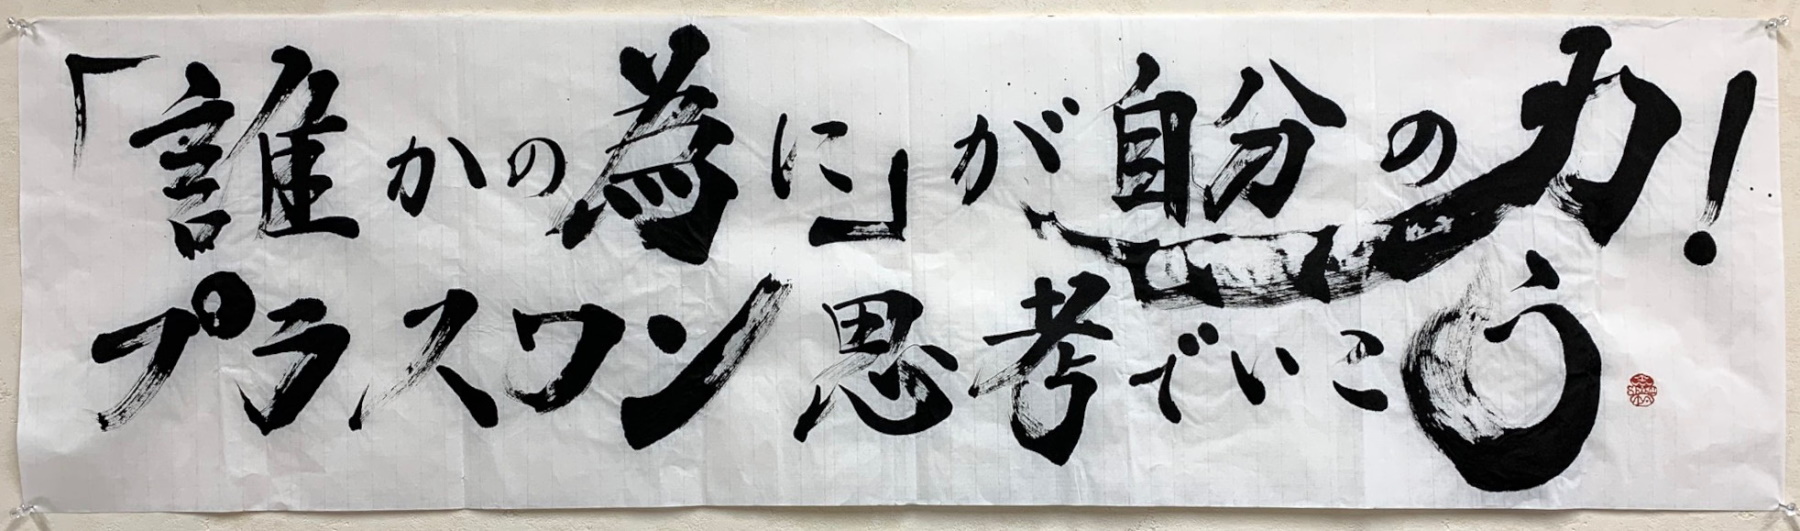 「誰かの為に」が自分の力!
プラスワン思考でいこう